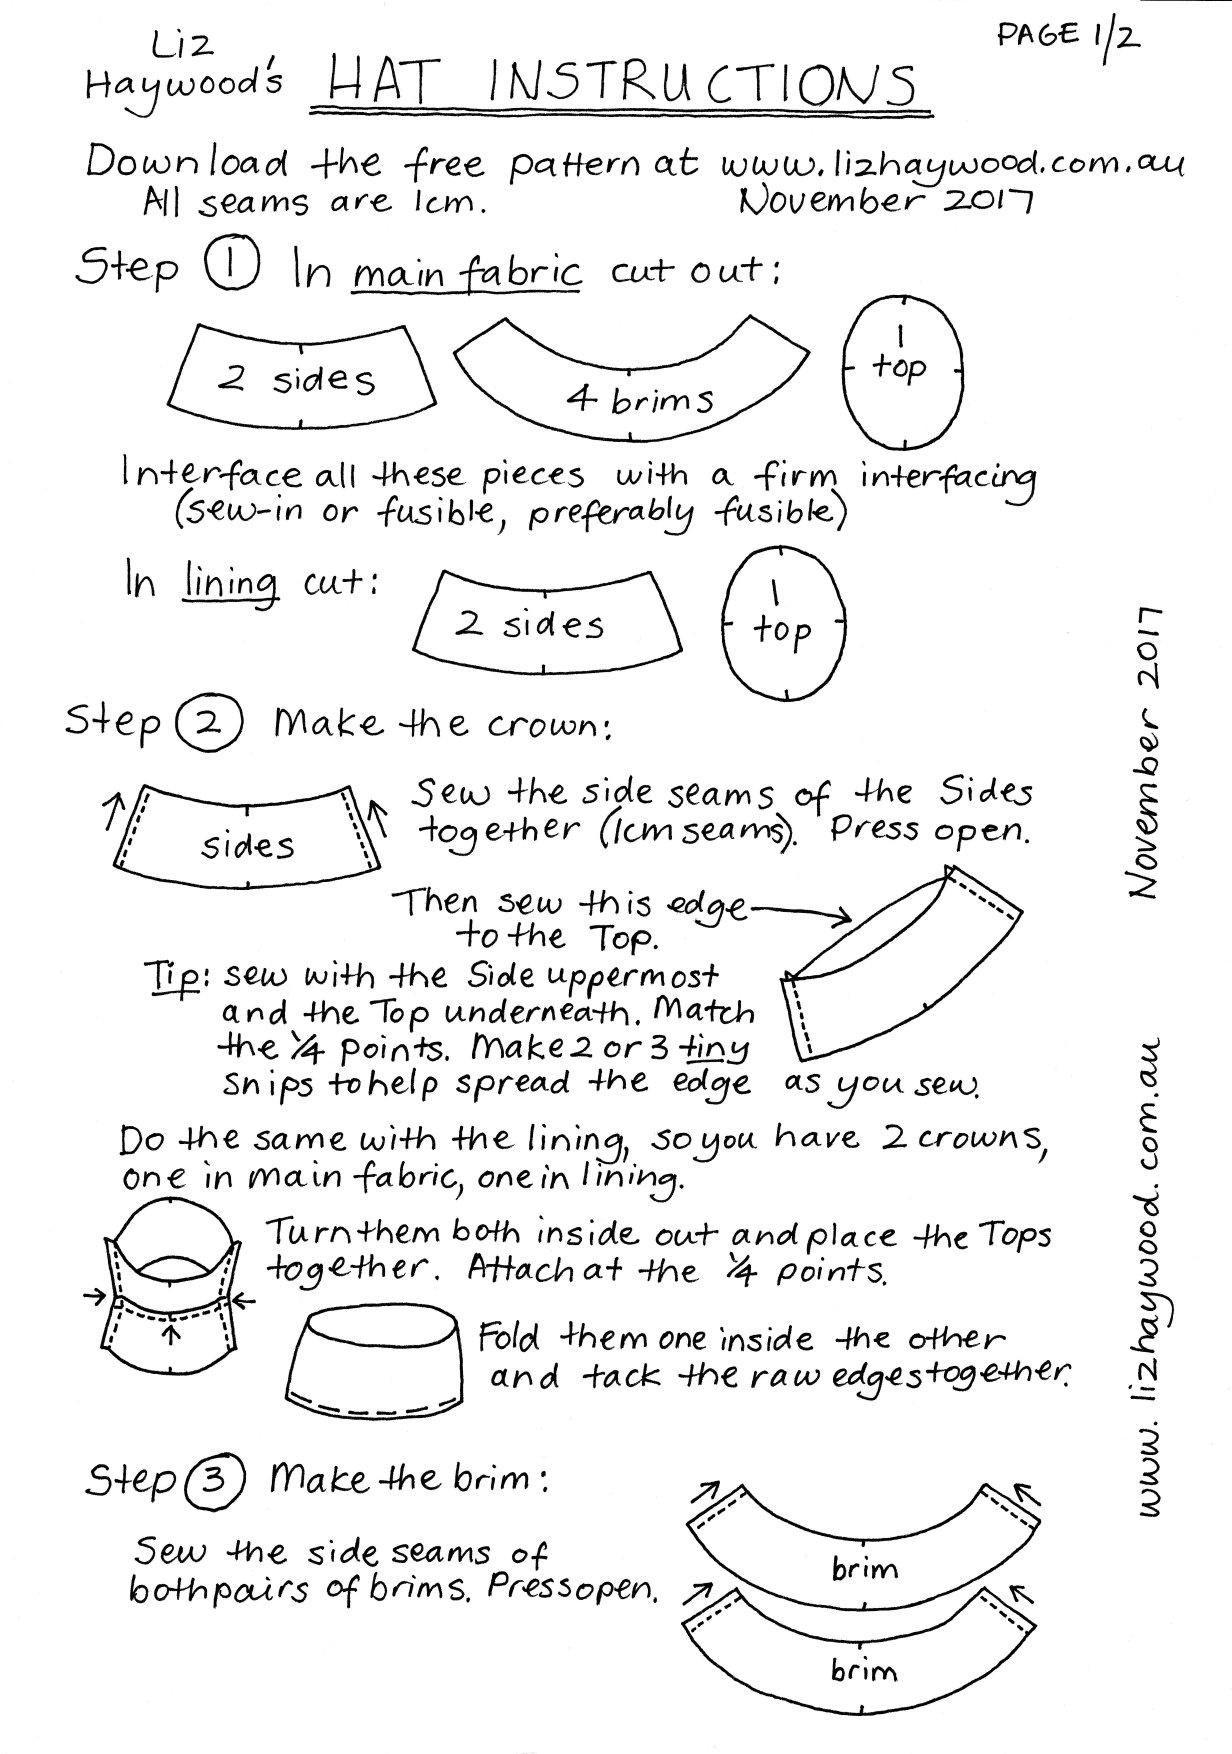 Liz
Haywood's HAT INSTRUCTIONS
PAGE 1/2
Download the free pattern at www.lizhaywood.com.au
All seams are 1cm. November 2017
Step 1 In main fabric cut out:
2 sides
4 brims
1
top
Interface all these pieces with a firm interfacing
(sew-in or fusible, preferably fusible)
In lining cut:
2 sides
1
top
Step 2 Make the crown:
sides
Sew the side seams of the Sides
together (1cm seams). Press open.
Then sew this edge
to the Top.
Tip: sew with the Side uppermost
and the Top underneath. Match
the 1/4 points. Make 2 or 3 tiny
snips to help spread the edge as you sew.
Do the same with the lining, so you have 2 crowns,
one in main fabric, one in lining.
Turn them both inside out and place the Tops
together. Attach at the 1/4 points.
Fold them one inside the other
and tack the raw edges together.
Step 3 Make the brim:
Sew the side seams of
both pairs of brims. Press open.
brim
brim
www.lizhaywood.com.au November 2017